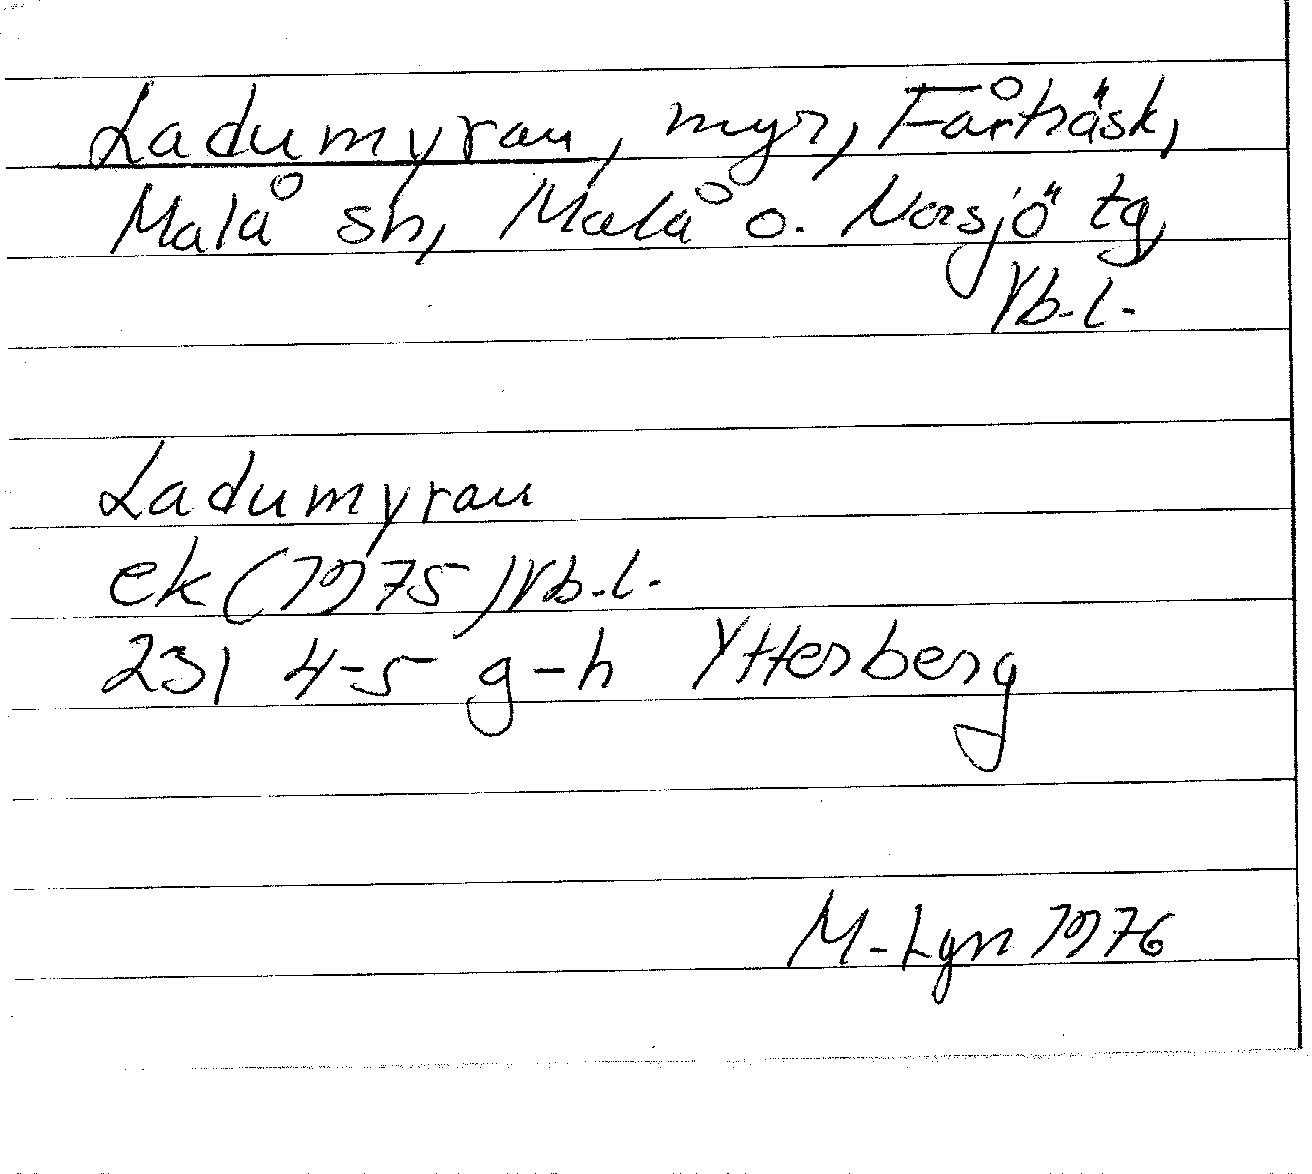 Ladumyran, myr, Fårträsk,
Malå sn, Malå o. Norsjö tg,
Vb.l.
Ladumyran
ek (1975) Vb.l.
23I 4-5 g-h Ytterberg
M-Lgn 1976